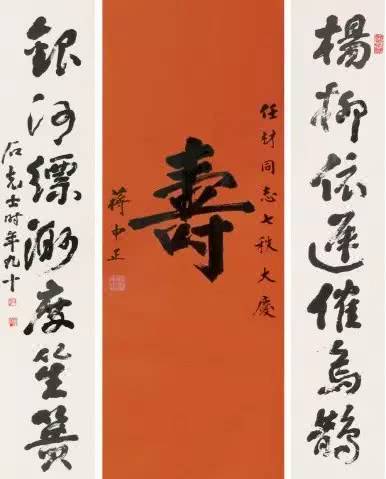 楊柳依遲催烏鵲
任同志七秩大慶
壽
蔣中正
銀河縹渺度笙簧
石克士时年九十